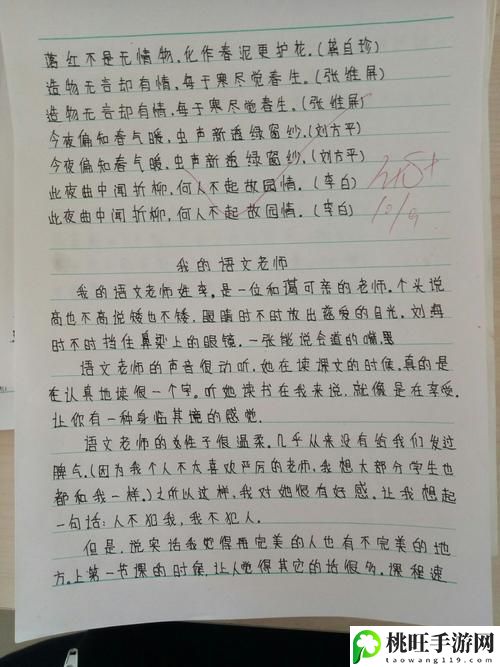 落红不是无情物,化作春泥更护花。(龚自珍)
造物无言却有情,每于寒尽觉春生。(张维屏)
造物无言却有情,每于寒尽觉春生。(张维屏)
今夜偏知春气暖,虫声新透绿窗纱。(刘方平)
今夜偏知春气暖,虫声新透绿窗纱。(刘方平)
此夜曲中闻折柳,何人不起故园情。(李白)
此夜曲中闻折柳,何人不起故园情。(李白)
我的语文老师
我的语文老师姓李。是一位和蔼可亲的老师。个头说
高也不高说矮也不矮,眼睛时不时放出慈爱的目光。刘海
时不时挡住鼻梁上的眼镜。一张能说会道的嘴
语文老师的声音很动听,她在读课文的时候,真的是
在认真地读很一个字。听她读书在我来说,就像是在享受。
让你有一种身临其境的感觉.
语文老师的性子很温柔。几乎从来没有给我们发过
脾气。(因为我个人不太喜欢严厉的老师,我想大部分学生也
都和我一样。)之所以这样,我对她很有好感。让我想起
一句话:人不犯我,我不犯人.
但是,说实话我觉得再完美的人也有不完美的地
方。上第一节课的时候,让人觉得其它的话很多,课程速
桃旺手游网
taowang119.com